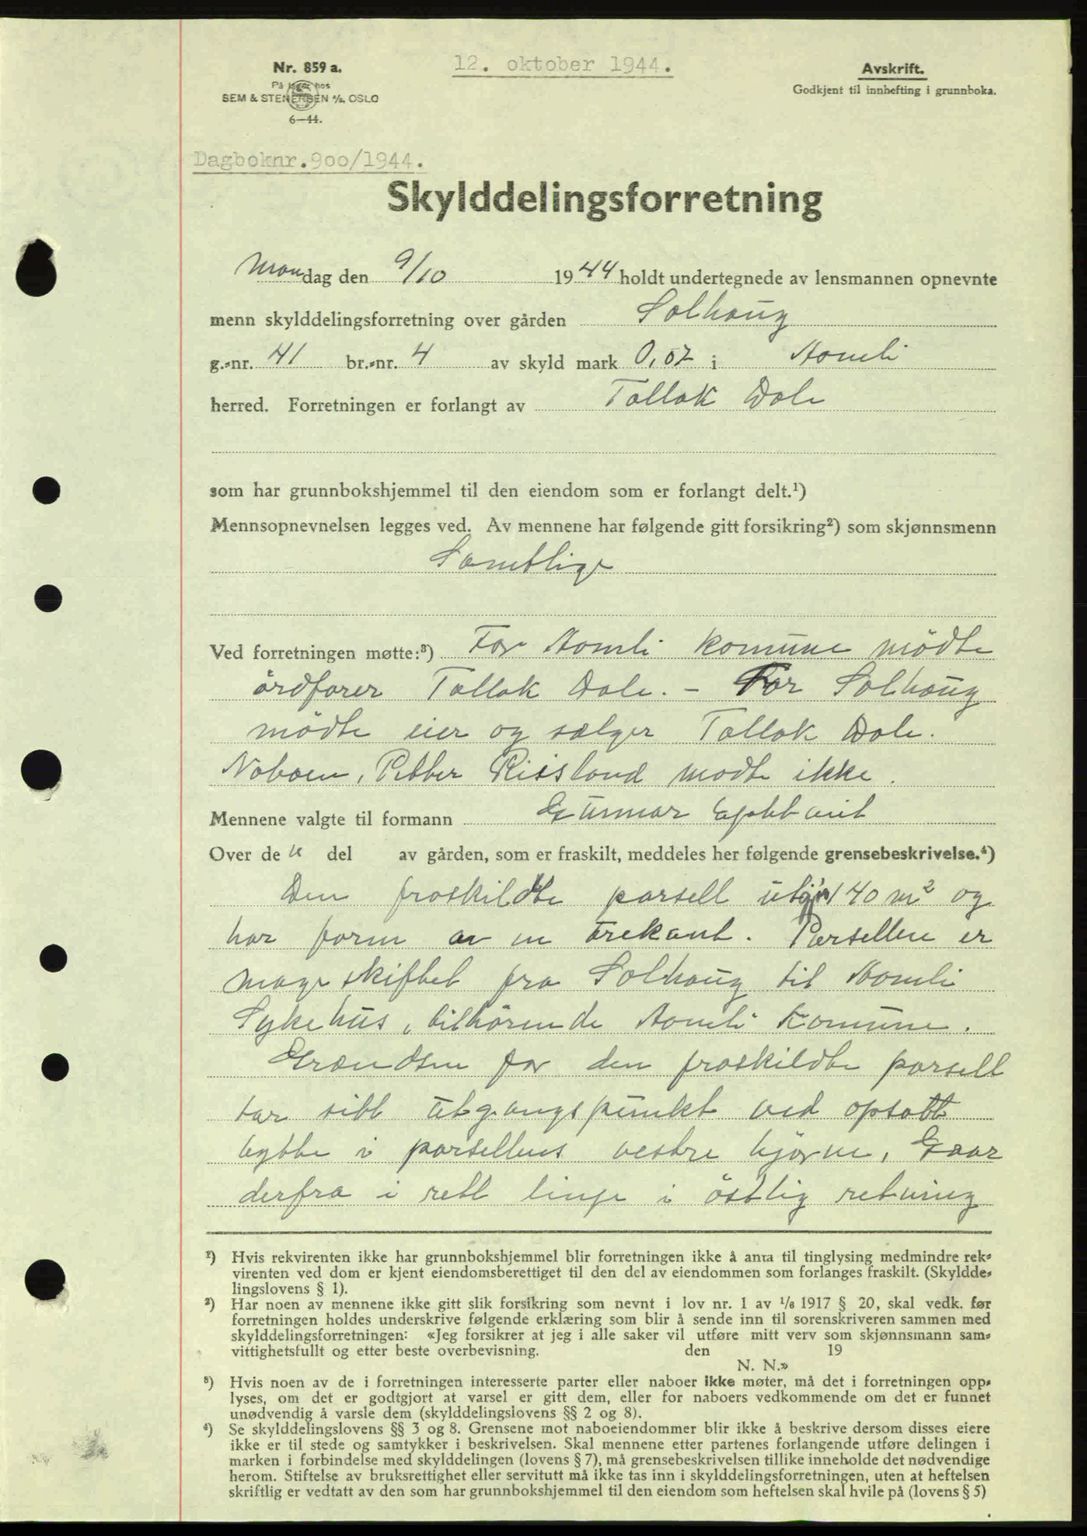 Nr. 859 a.
På lager hos
SEM & STENERSEN A/S. OSLO
6—44.
12. oktober 1944.
Avskrift.
Godkjent til innhefting i grunnboka.
Dagboknr.900/1944.
Skylddelingsforretning
Mandag den 9/10 1944 holdt undertegnede av lensmannen opnevnte
menn skylddelingsforretning over gården Solhaug
g.-nr. 41 br.-nr. 4 av skyld mark 0,02 i Aamli
herred. Forretningen er forlangt av Tallak Dale
som har grunnbokshjemmel til den eiendom som er forlangt delt.¹)
Mennsopnevnelsen legges ved. Av mennene har følgende gitt forsikring²) som skjønnsmenn
Samtlige
Ved forretningen møtte:³) For Aamli komune mödte
ordförer Tallak Dale. – For Solhaug
mödte eier og sælger Tallak Dale.
Naboen, Petter Rissland mödte ikke.
Mennene valgte til formann Gunnar
Over de u del av gården, som er fraskilt, meddeles her følgende grensebeskrivelse.⁴)
Den fraskildte parsell utgjör 140 m² og
har form av en trekant. Parsellen er
mageskiftet fra Solhaug til Aamli
Sykehus, tilhörende Aamli Komune.
Grændsen for den fraskildte parsell
tar sitt utgangspunkt ved opsatt
bytte i parsellens vestre hjörne, Gaar
derfra i rett linje i östlig retning
¹) Hvis rekvirenten ikke har grunnbokshjemmel blir forretningen ikke å anta til tinglysing medmindre rek-
virenten ved dom er kjent eiendomsberettiget til den del av eiendommen som forlanges fraskilt. (Skyldde-
lingslovens § 1).
²) Har noen av mennene ikke gitt slik forsikring som nevnt i lov nr. 1 av 1/6 1917 § 20, skal vedk. før
forretningen holdes underskrive følgende erklæring som blir å sende inn til sorenskriveren sammen med
skylddelingsforretningen: «Jeg forsikrer at jeg i alle saker vil utføre mitt verv som skjønnsmann sam-
vittighetsfullt og etter beste overbevisning. den 19
N. N.»
³) Hvis noen av de i forretningen interesserte parter eller naboer ikke møter, må det i forretningen opp-
lyses, om det er godtgjort at varsel er gitt dem, eller for naboers vedkommende om det er funnet
unødvendig å varsle dem (skylddelingslovens §§ 2 og 8).
⁴) Se skylddelingslovens §§ 3 og 8. Grensene mot naboeiendommer blir ikke å beskrive dersom disses eiere
ikke er til stede og samtykker i beskrivelsen. Skal mennene etter partenes forlangende utføre delingen i
marken i forbindelse med skylddelingen (lovens § 7), må grensebeskrivelsen tillike inneholde det nødvendige
herom. Stiftelse av bruksrettighet eller servitutt må ikke tas inn i skylddelingsforretningen, uten at heftelsen
skriftlig er vedtatt av den som har grunnbokshjemmel til den eiendom som heftelsen skal hvile på (lovens § 5)